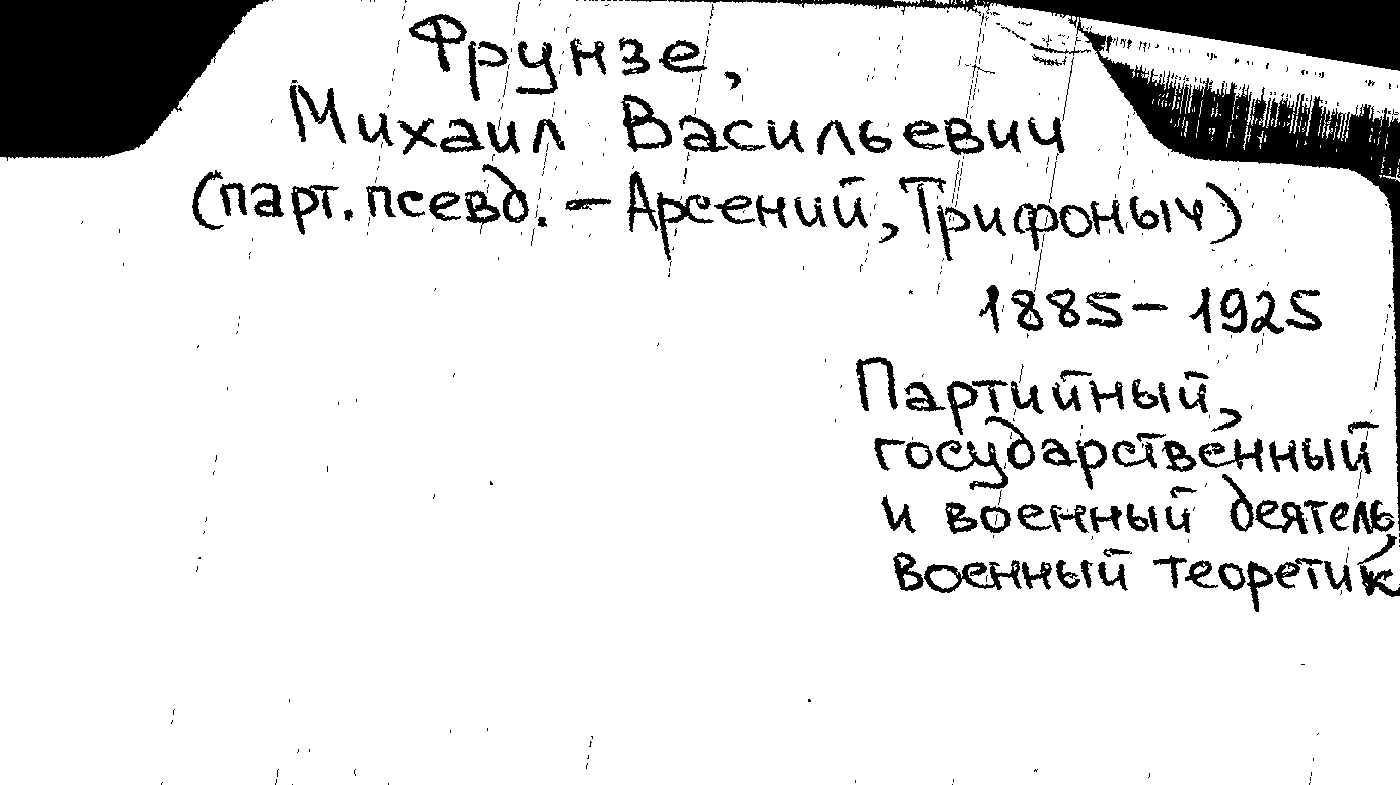 Фрунзе,
Михаил Васильевич
(парт. псевд. – Арсений, Трифоныч)
1885 – 1925
Партийный,
государственный
и военный деятель,
военный теоретик